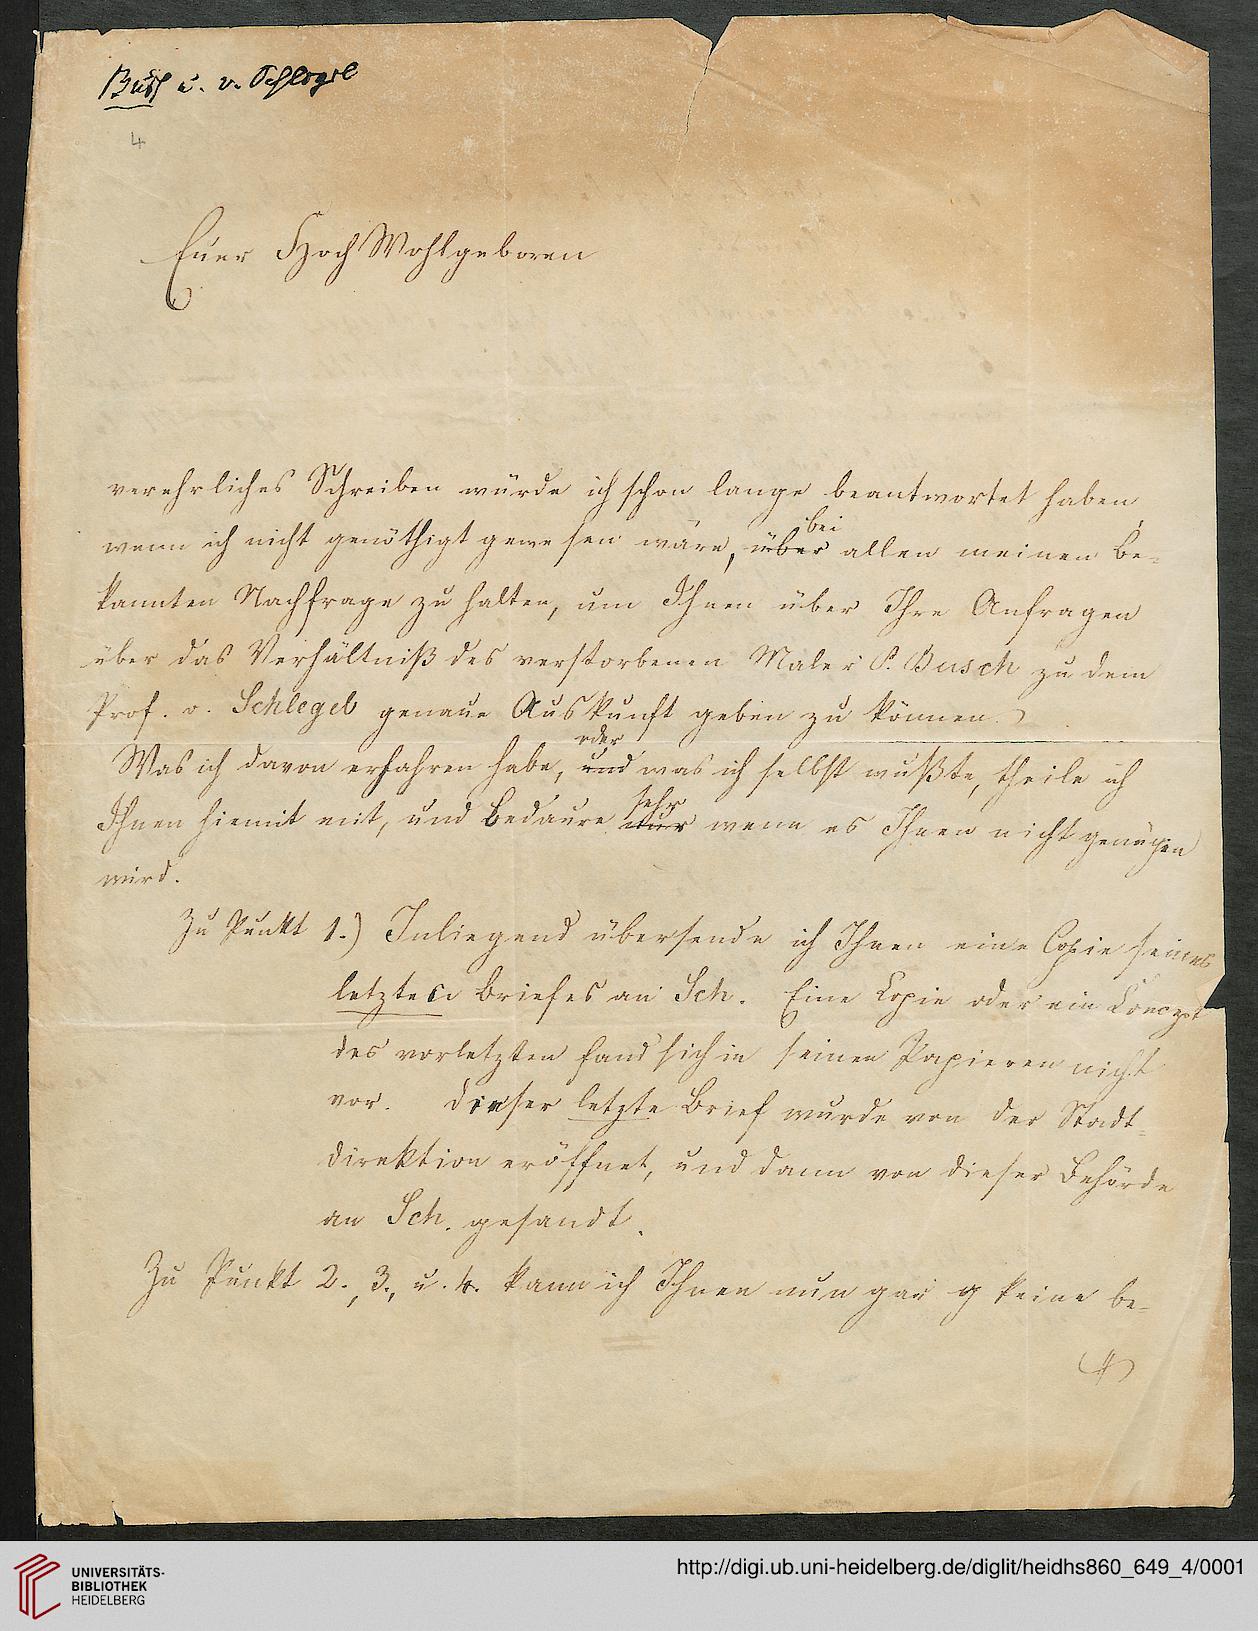 Busch u. v. Schlegel
4
Euer HochWohlgeboren
verehrliches Schreiben würde ich schon lange beantwortet haben,
bei
wenn ich nicht genöthigt gewesen wäre, über allen meinen Be-
kannten Nachfrage zu halten, um Ihnen über Ihre Anfragen
über das Verhältniß des verstorbenen Maler P. Busch zu dem
Prof. v. Schlegel genaue Auskunft geben zu können.
oder
Was ich davon erfahren habe, und was ich selbst wußte, theile ich
sehr
Ihnen hiemit mit, und bedaure nur wenn es Ihnen nicht genügen
wird.
Zu Punkt 1.) Inliegend übersende ich Ihnen eine Copie seines
letzten Briefes an Sch. Eine Copie oder ein Concept
des vorletzten fand sich in seinen Papieren nicht
vor. Dieser letzte Brief wurde von der Stadt-
direktion eröffnet, und dann von dieser Behörde
an Sch. gesandt.
Zu Punkt 2., 3., u. 4. kann ich Ihnen nun gar g keine be-
UNIVERSITÄTS-
BIBLIOTHEK
HEIDELBERG
http://digi.ub.uni-heidelberg.de/diglit/heidhs860_649_4/0001